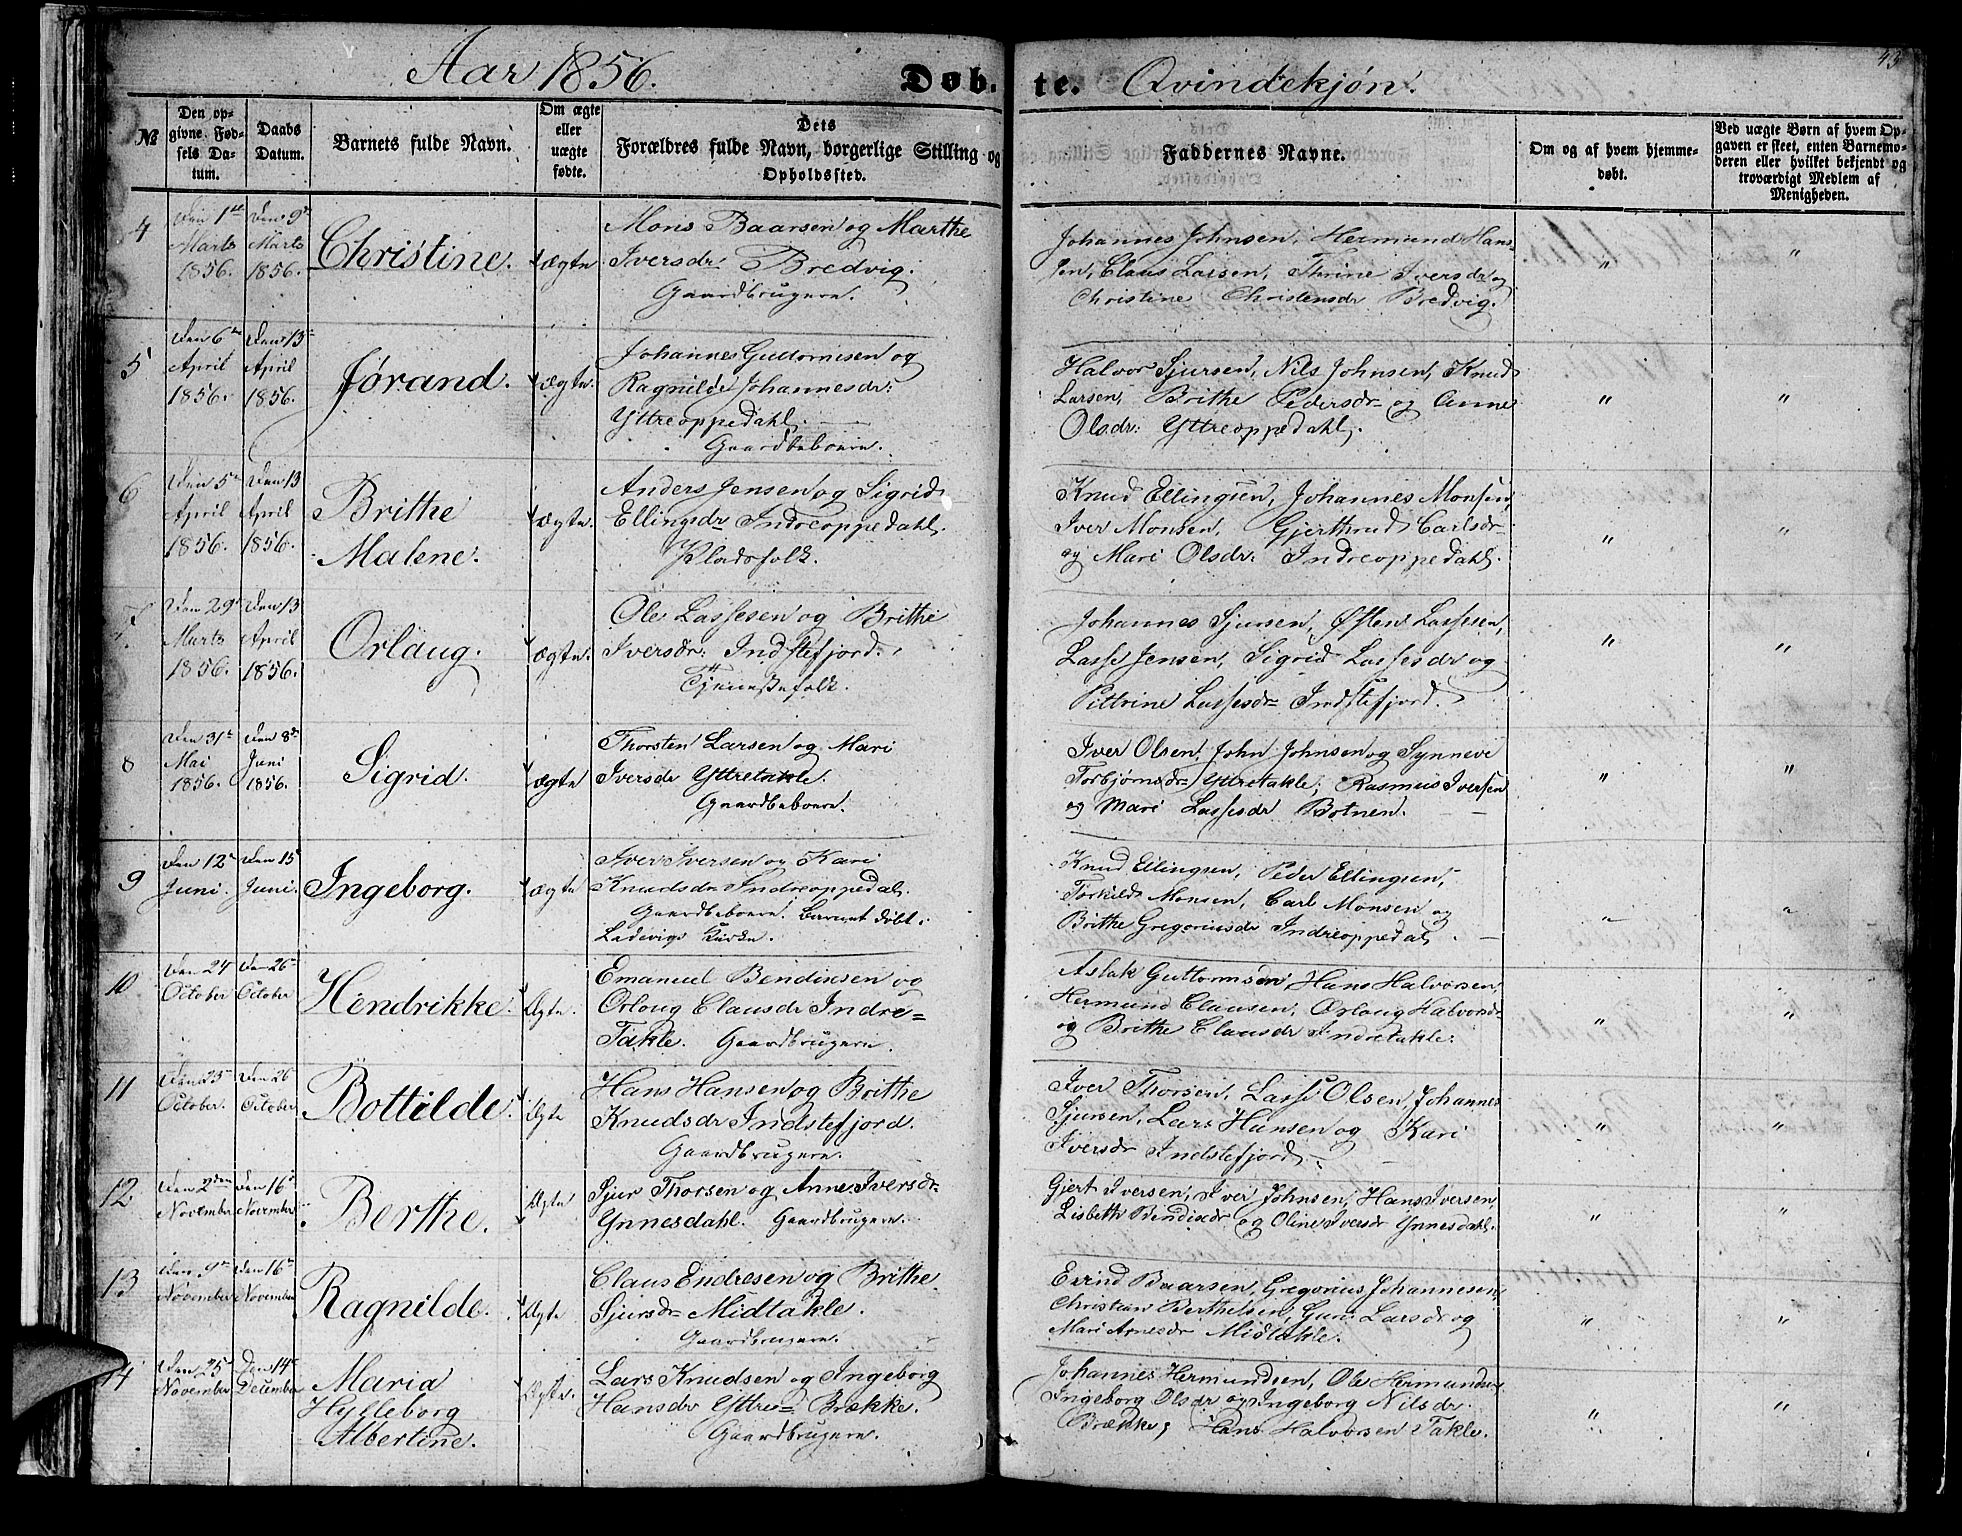 Aar 1856. Døb. te. Qvindekjøn. 43
№
Den op-
givne Fød-
sels Da-
tum.
Daabs
Datum.
Barnets fulde Navn.
Om ægte
eller
uægte
fødte.
Dets
Forældres fulde Navn, borgerlige Stilling og
Opholdssted.
Faddernes Navne.
Om og af hvem hjemme-
døbt.
Ved uægte Børn af hvem Op-
gaven er skeet, enten Barnemo-
deren eller hvilket bekjendt og
troværdigt Medlem af
Menigheden.
4
Den 1ste
Marts
1856.
Den 9de
Marts
1856.
Christine.
ægte
Mons Baarsen og Marthe
Iversdr Bredvig.
Gaardbrugere.
Johannes Johnsen, Hermund Han-
sen, Claus Larsen, Thrine Iversdr og
Christine Christensdr Bredvig.
" "
5
Den 6te
April
1856.
Den 13de
April
1856.
Jørand.
ægte.
Johannes Guttormsen og
Ragnilde Johannesdr:
Yttreoppedahl.
Gaardbeboere.
Halvor Sjursen, Nils Johnsen, Knud
Larsen, Brithe Pedersdr og Anne
Olsdr: Yttreoppedahl.
" "
6
Den 5te
April
1856.
Den 13
April
1856.
Brithe
Malene.
ægte.
Anders Jensen og Sigrid
Ellingsdr Indreoppedahl.
Pladsfolk.
Knud Ellingsen, Johannes Monsen,
Iver Monsen, Gjerthrud Carlsdr
og Mari Olsdr: Indreoppedahl.
" "
7
Den 29de
Marts
1856.
Den 13
April
1856.
Orlaug.
ægte.
Ole Lassesen og Brithe
Iversdr: Indstefjord.
Tjenestefolk.
Johannes Sjursen, Østen Lassesen,
Lasse Jensen, Sigrid Lassesdr og
Pittrine Lassesdr Indstefjord.
" "
8
Den 31te
Mai
1856.
Den 8de
Juni
1856.
Sigrid.
ægte
Thorsten Larsen og Mari
Iversdr Yttretakle.
Gaardbeboere.
Iver Olsen, John Johnsen og Synneve
Torbjørnsdr Yttretakle; Rasmus Iversen
og Mari Lassesdr Botnen.
" "
9
Den 12te
Juni.
Den 15
Juni.
Ingeborg.
ægte
Iver Iversen og Kari
Knudsdr Indreoppedal.
Gaardbeboere. Barnet døbt i
Ladevigs Kirke.
Knud Ellingsen, Peder Ellingsen,
Torkild Monsen, Carl Monsen og
Brithe Gregoriusdr Indreoppedal.
" "
10
Den 24
October
Den 26
October
Hendrikke.
Ægte.
Emanuel Bendixsen og
Orloug Clausdr Indre=
Takle. Gaardbrugere.
Aslak Guttormsen, Hans Halvorsen,
Hermund Clausen, Orloug Halvorsdr
og Brithe Clausdr Indretakle.
" "
11
Den 25
October.
Den 26
October
Bottilde.
Ægte
Hans Hansen og Brithe
Knudsdr Indstefjord.
Gaardbrugere.
Iver Thorsen, Lasse Olsen, Johannes
Sjursen, Lars Hansen og Kari
Iversdr Indstefjord.
" "
12
Den 2den
November
Den 16de
November
Berthe.
Ægte
Sjur Thorsen og Anne Iversdr
Ynnesdahl. Gaardbrugere.
Gjert Iversen, Iver Johnsen, Hans Iversen,
Lisbeth Bendixdr og Oline Iversdr Ynnesdahl.
" "
13
Den 9de
November
Den 16de
November
Ragnilde.
Ægte
Claus Endresen og Brithe
Sjursdr Midtakle.
Gaardbrugere.
Eivind Baarsen, Gregorius Johannesen,
Christian Berthelsen, Guri Larsdr og
Mari Arnesdr Midtakle.
" "
14
Den 25de
November
Den 14de
December
Maria
Hylleborg
Albertine.
Ægte.
Lars Knudsen og Ingeborg
Hansdr Yttre= Brække.
Gaardbrugere.
Johannes Hermundsen, Ole Hermundsen
Ingeborg Olsdr og Ingeborg Nilsdr.
Brække, Hans Halvorsen Takle.
" "